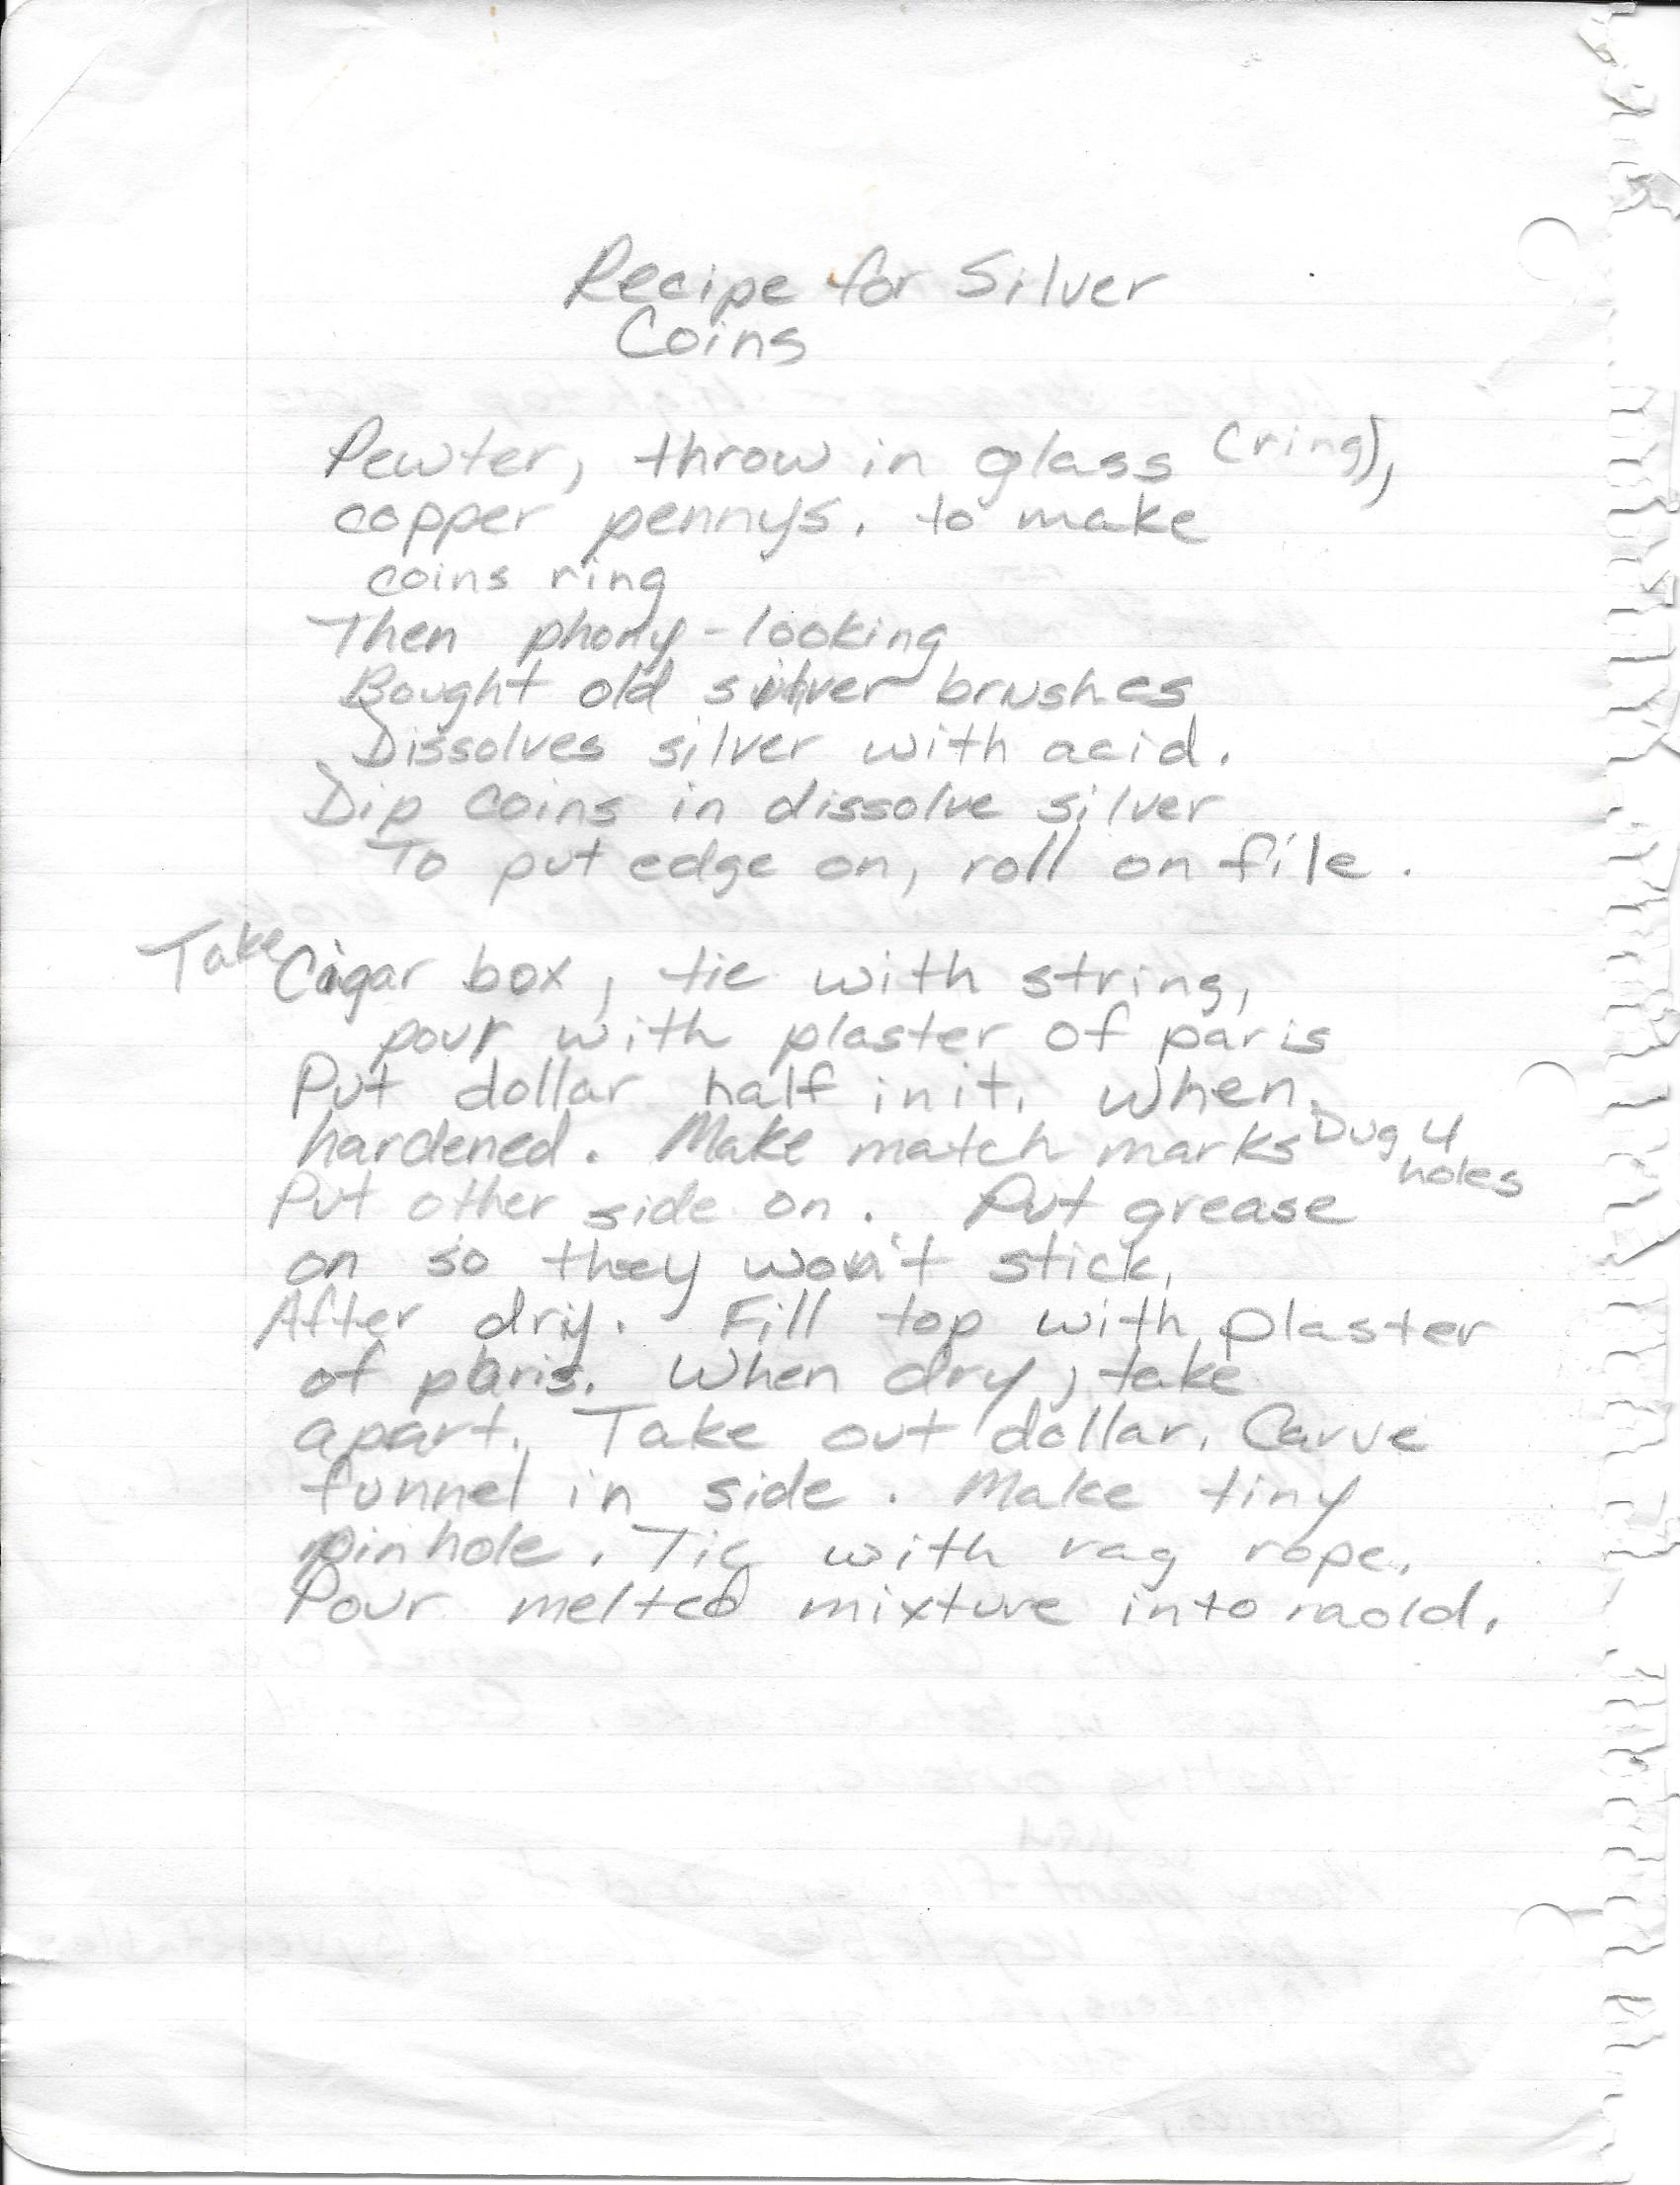 Recipe for Silver
Coins
Pewter, throw in glass (ring),
copper pennys. to make
coins ring
Then phony-looking
Bought old silver brushes
Dissolves silver with acid.
Dip coins in dissolve silver
To put edge on, roll on file.
Take Cigar box, tie with string,
pour with plaster of paris
Put dollar half in it. When
hardened. Make match marks Dug 4
holes
Put other side on. Put grease
on so they won't stick.
After dry. Fill top with plaster
of paris. When dry, take
apart. Take out dollar. Carve
funnel in side. Make tiny
pinhole. Tie with rag rope.
Pour melted mixture into mold.